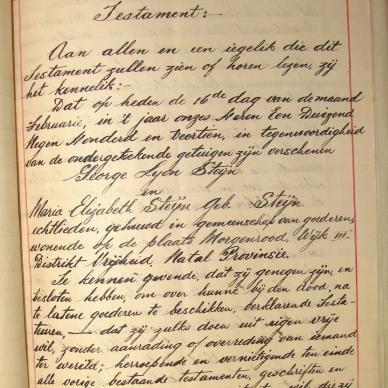 Testament:-
Aan allen en een iegelik die dit
Testament zullen zien of horen lezen, zij
het kennelik:-
Dat op heden de 16de dag van de maand
Februarie, in 't jaar onzes Heren Een Duizend
Negen Honderd en Veertien, in tegenwoordigheid
van de ondergetekende getuigen zijn verschenen
George Lyon Steijn
en
Maria Elizabeth Steijn geb. Steijn.
echtlieden, gehuwd in gemeenschap van goederen,
wonende op de plaats Morgenrood, Wijk
Distrikt Vrijheid, Natal Provinsie.
Te kennen gevende, dat zij genegen zijn, en
besloten hebben, om over hunne bij den dood, na
te latene goederen te beschikken, verklarende Testa-
teuren, — dat zij zulks doen uit eigen vrije
wil, zonder aanrading of overreding van iemand
ter wereld; herroepende en vernietigende ten einde
alle vorige bestaande testamenten, geschriften en